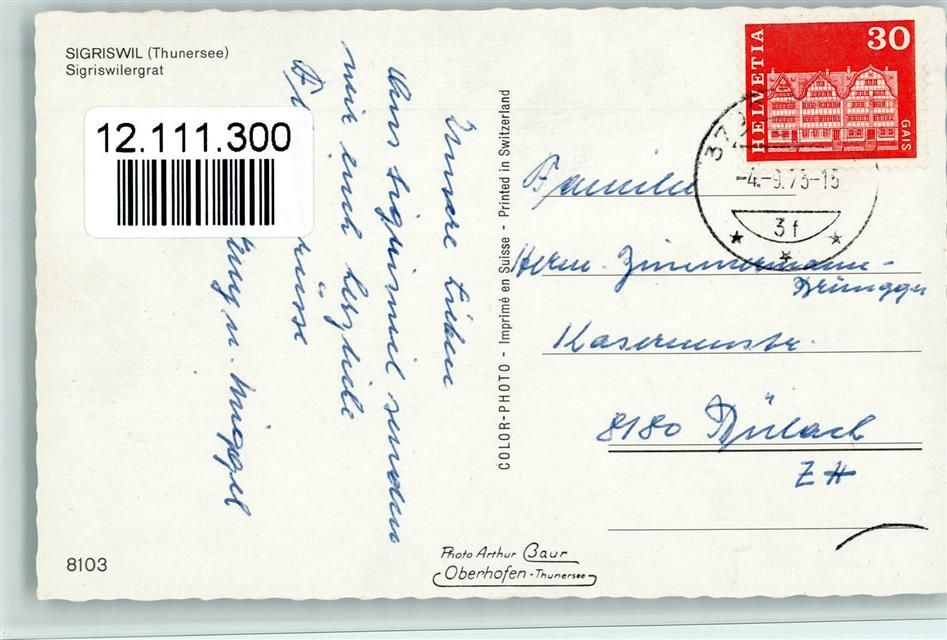 SIGRISWIL (Thunersee)
Sigriswilergrat
12.111.300
Unsere lieben
Aus Sigriswil senden
wir Euch herzliche
8103
COLOR-PHOTO - Imprimé en Suisse - Printed in Switzerland
Photo Arthur Baur
Oberhofen - Thunersee
HELVETIA
30
GAIS
-4.-9.73-15
3f
Familie
Herm. Zimmermann-
Brüngger
Kasernenstr.
8180 Bülach
ZH